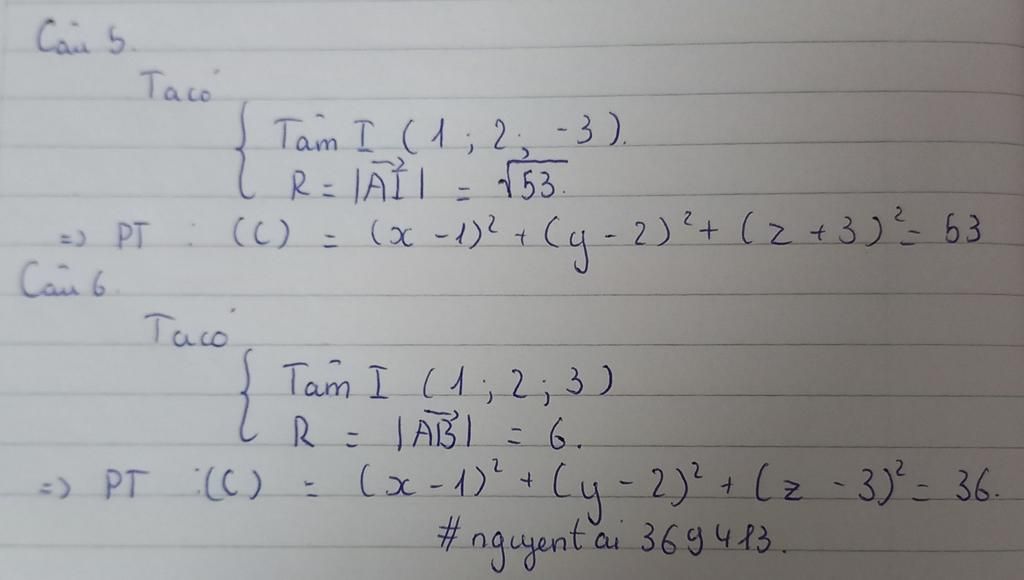 Câu 5.
Ta có
{ Tâm I (1 ; 2 ; -3).
R = |AI| = √53.
=> PT : (C) = (x - 1)² + (y - 2)² + (z + 3)² = 53
Câu 6.
Ta có
{ Tâm I (1 ; 2 ; 3)
R = |AB| = 6.
=> PT : (C) = (x - 1)² + (y - 2)² + (z - 3)² = 36.
# nguyentai 369413.